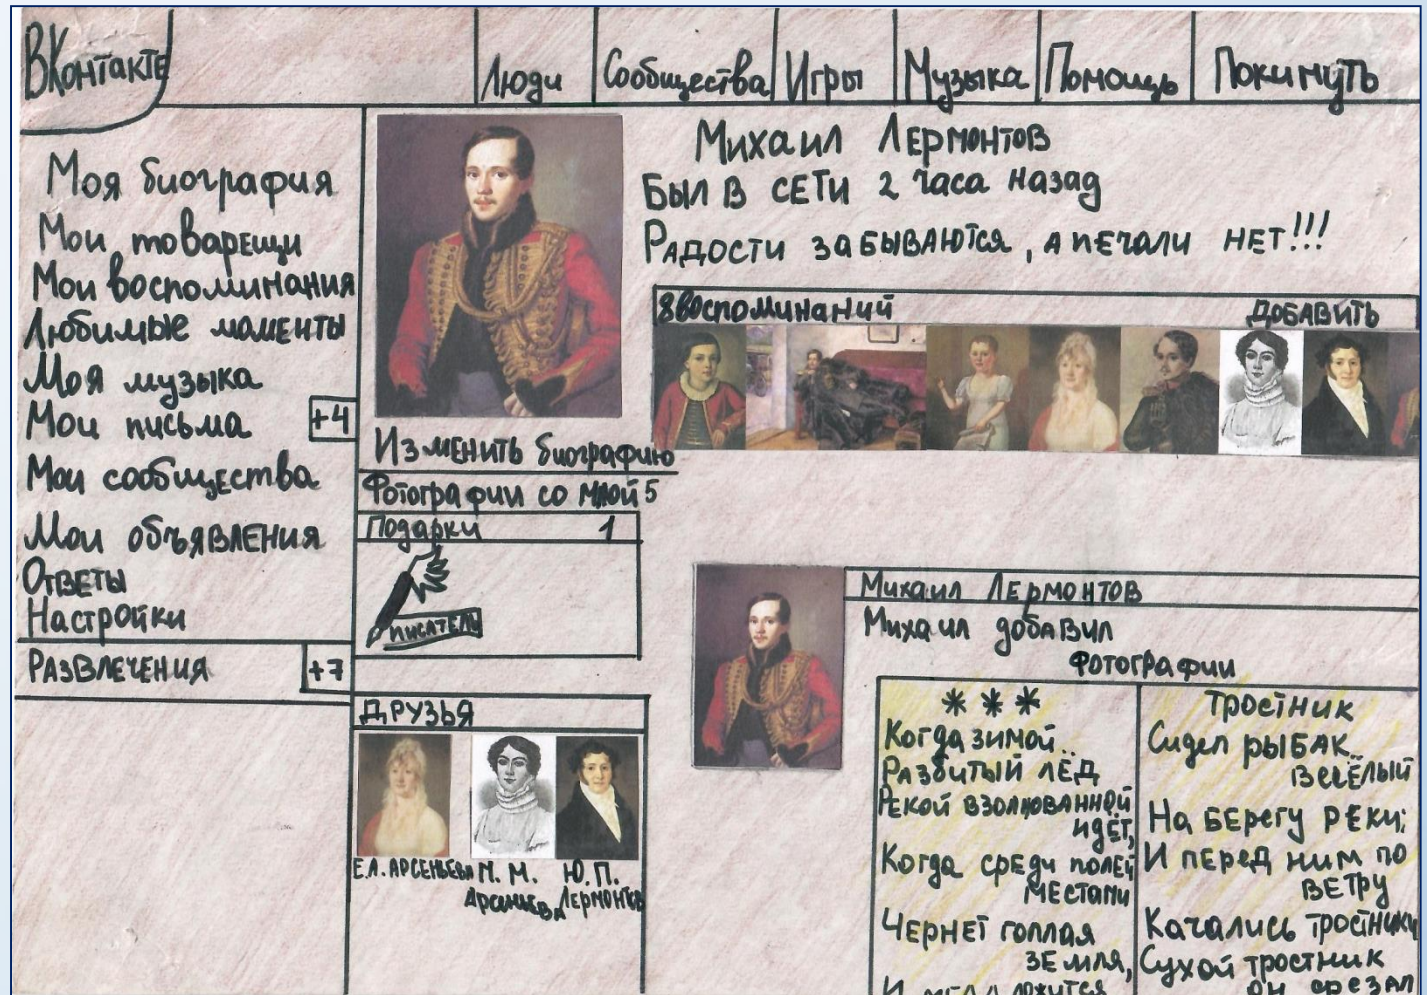 ВКонтакте
Люди
Сообщества
Игры
Музыка
Помощь
Покинуть
Моя биография
Мои товарещи
Мои воспоминания
Любимые моменты
Моя музыка
Мои письма +4
Мои сообщества
Мои объявления
Ответы
Настройки
Развлечения +7
Изменить биографию
Фотографии со мной 5
Подарки 1
писатель
Друзья
Е.А. Арсеньева
М. М. Арсеньева
Ю. П. Лермонтов
Михаил Лермонтов
Был в сети 2 часа назад
Радости забываются, а печали нет!!!
8 воспоминаний
Добавить
Михаил Лермонтов
Михаил добавил
фотографии
* * *
Когда зимой
Разбитый лёд
Рекой взолнованной
идёт,
Когда среди полей
местами
Чернет голлая
земля,
И мгла ложится
Тростник
Сидел рыбак
весёлый
На берегу реки;
И перед ним по
ветру
Качались тростники
Сухой тростник
он срезал